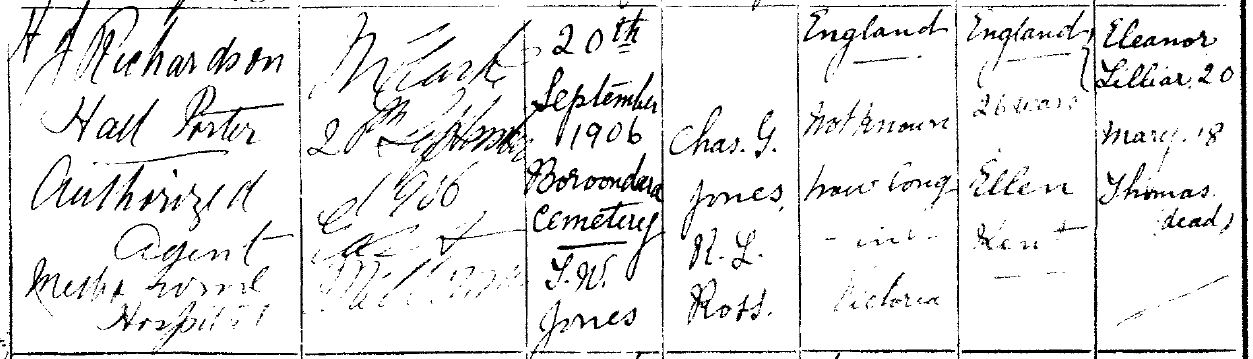 H J Richardson
Hall Porter
Authorized
Agent
Hospital
20th September
1906
East
Melbourne
20th
September
1906
Boroondara
Cemetery
T. W.
Jones
Chas. G.
Jones,
R. L.
Ross.
England
Not known
how long
in
Victoria
England
26 years
Ellen
Kent
Eleanor
Lillian, 20
Mary. 18
Thomas
(dead)